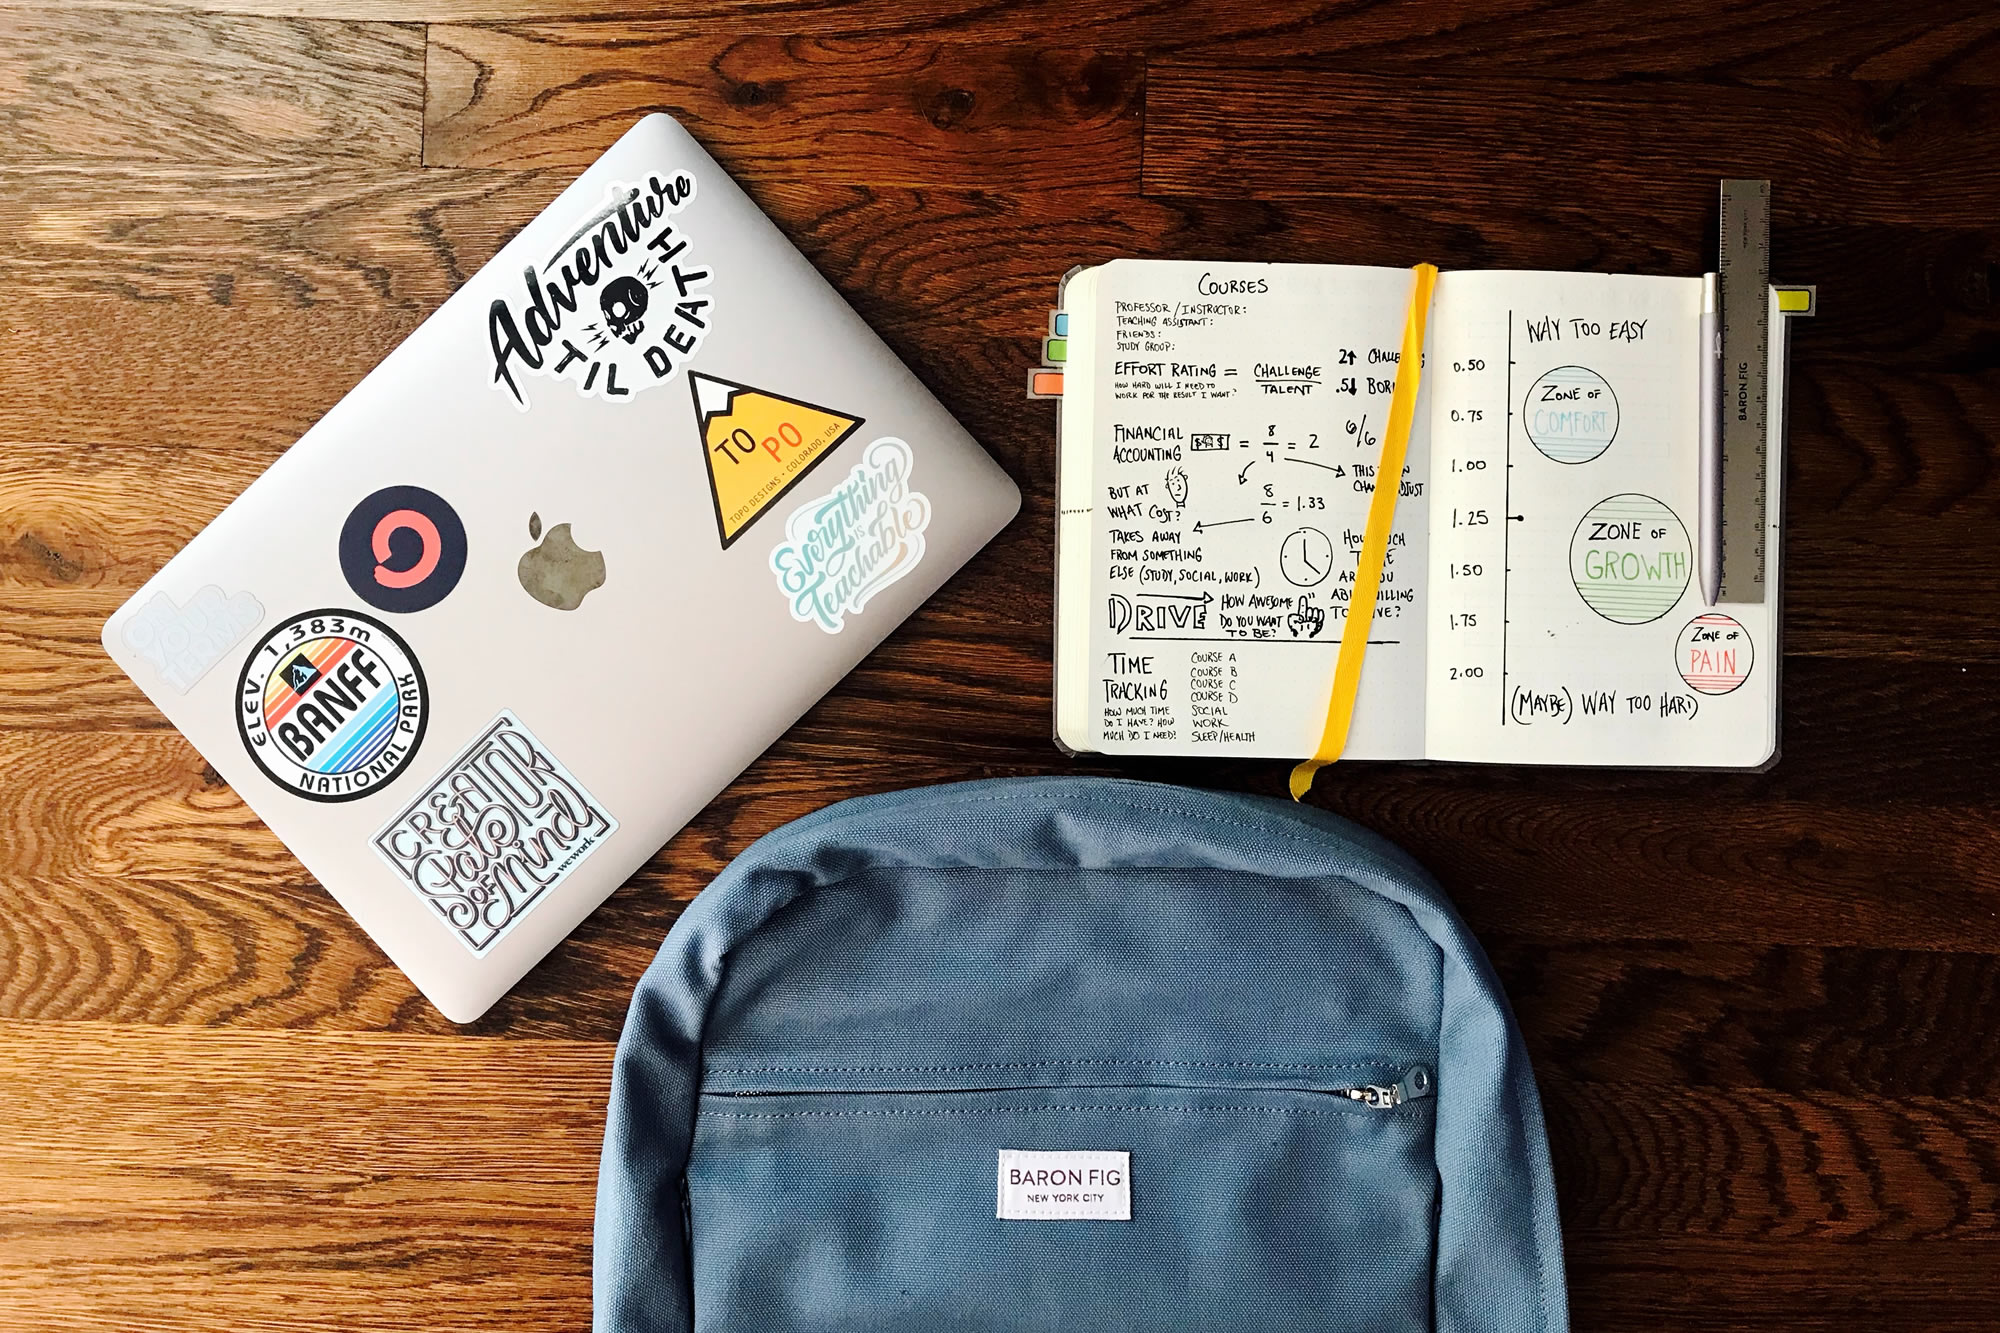 Adventure
TIL DEATH
TO
PO
TOPO DESIGNS • COLORADO, USA
Everything
IS
Teachable
ON
YOUR
TERMS
ELEV. 1,383m
BANFF
NATIONAL PARK
CREATOR
State
OF Mind
wework
COURSES
PROFESSOR / INSTRUCTOR:
TEACHING ASSISTANT:
FRIENDS:
STUDY GROUP:
EFFORT RATING = CHALLENGE
TALENT
HOW HARD WILL I NEED TO
WORK FOR THE RESULT I WANT?
2↑
.5↓
FINANCIAL
ACCOUNTING
$ $ = 8/4 = 2
6/6
BUT AT
WHAT COST?
8/6 = 1.33
THIS
TAKES AWAY
FROM SOMETHING
ELSE (STUDY, SOCIAL, WORK)
HOW
YOU
WILLING
DRIVE
HOW AWESOME
DO YOU WANT
TO BE?
TIME
TRACKING
HOW MUCH TIME
DO I HAVE? HOW
MUCH DO I NEED?
COURSE A
COURSE B
COURSE C
COURSE D
SOCIAL
WORK
SLEEP/HEALTH
WAY TOO EASY
0.50
0.75
1.00
1.25
1.50
1.75
2.00
ZONE OF
COMFORT
ZONE OF
GROWTH
ZONE OF
PAIN
(MAYBE) WAY TOO HARD
BARON FIG
BARON FIG
NEW YORK CITY